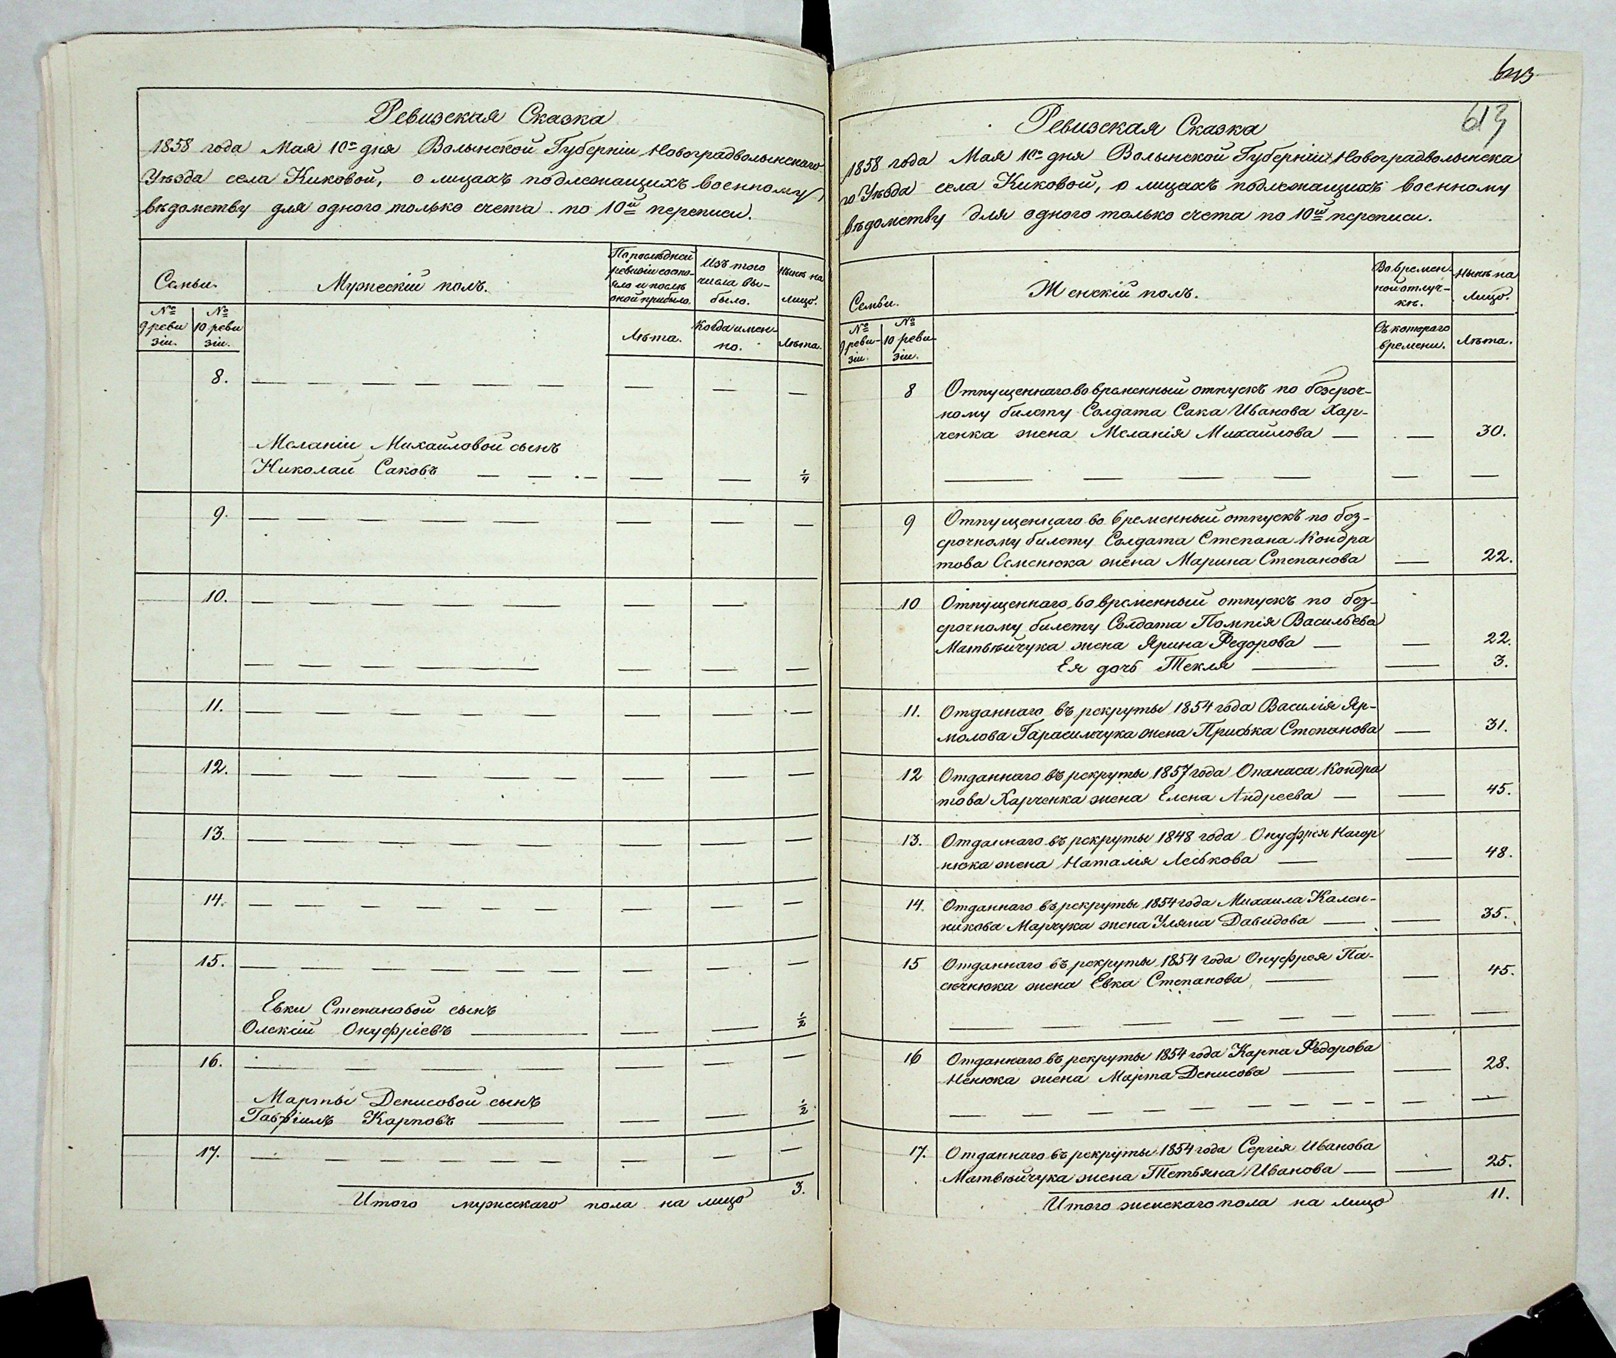 Ревизская Сказка
1858 года Мая 10го дня Волынской Губерніи Новоградволынскаго
Уѣзда села Киковой, о лицахъ подлежащихъ военному
вѣдомству для одного только счета по 10й переписи.
Семьи.
№ 9 ревизіи.
№ 10 ревизіи.
Мужескій полъ.
По послѣдней
ревизіи состо-
яло и послѣ
оной прибыло.
Лѣта.
Изъ того
числа вы-
было.
Когда имен-
но.
Нынѣ на
лицо.
Лѣта.
8. — — — — — — — — — —
Меланіи Михайловой сынъ
Николай Саковъ — — — — — 1/4
9. — — — — — — — — — —
10. — — — — — — — — —
— — — — — — — — — —
11. — — — — — — — — — —
12. — — — — — — — — — —
13. — — — — — — — — — —
14. — — — — — — — — — —
15. — — — — — — — — — —
Евки Степановой сынъ
Олексій Онуфріевъ — — — 1/2
16. — — — — — — —
Марты Денисовой сынъ
Гавріилъ Карповъ — — — 1/2
17. — — — — — — — — —
Итого мужескаго пола на лицо 3.
613
Ревизская Сказка
1858 года Мая 10го дня Волынской Губерніи Новоградволынска
го Уѣзда села Киковой, о лицахъ подлежащихъ военному
вѣдомству для одного только счета по 10й переписи.
Семьи.
№ 9 ревизіи.
№ 10 ревизіи.
Женскій полъ.
Во времен-
ной отлуч-
кѣ.
Съ котораго
времени.
Нынѣ на
лицо.
Лѣта.
8 Отпущеннаго во временный отпускъ по безсроч-
ному билету Солдата Сака Иванова Хар-
ченка жена Меланія Михайлова — — 30.
— — — — — — —
9 Отпущеннаго во временный отпускъ по без-
срочному билету Солдата Степана Кондра
това Семенюка жена Марина Степанова — 22.
10 Отпущеннаго во временный отпускъ по без-
срочному билету Солдата Помпія Васильева
Матвѣйчука жена Ярина Федорова — — 22.
Ея дочь Текля — — 3.
11. Отданнаго въ рекруты 1854 года Василія Яр-
молова Гарасимчука жена Приська Степанова — 31.
12 Отданнаго въ рекруты 1857 года Опанаса Кондра
това Харченка жена Елена Андреева — — 45.
13. Отданнаго въ рекруты 1848 года Онуфрія Нагор
нюка жена Наталія Леськова — — 48.
14. Отданнаго въ рекруты 1854 года Михаила Кален-
никова Марчука жена Уляна Давидова — — 35.
15 Отданнаго въ рекруты 1854 года Онуфрея Па-
сѣчнюка жена Евка Степанова — — 45.
— — — — — —
16 Отданнаго въ рекруты 1854 года Карпа Федорова
жена Марта Денисова — — 28.
— — — — — — — — — —
17. Отданнаго въ рекруты 1854 года Сергія Иванова
Матвѣйчука жена Тетьяна Иванова — — 25.
Итого женскаго пола на лицо 11.